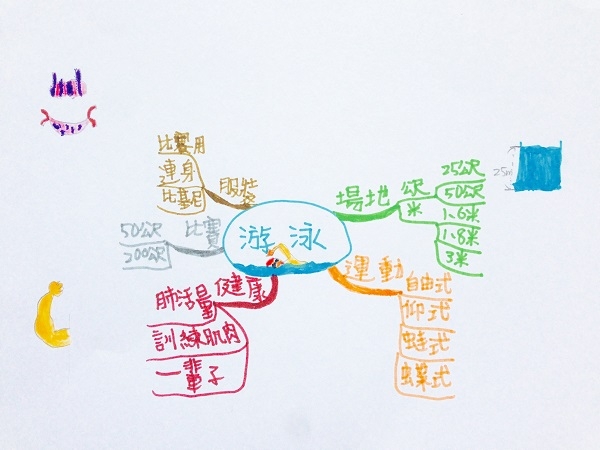 游泳
場地
公尺
米
25公尺
50公尺
1.6米
1.8米
3米
25m
運動
自由式
仰式
蛙式
蝶式
健康
肺活量
訓練肌肉
一輩子
比賽
50公尺
200公尺
服裝
比賽用
連身
比基尼